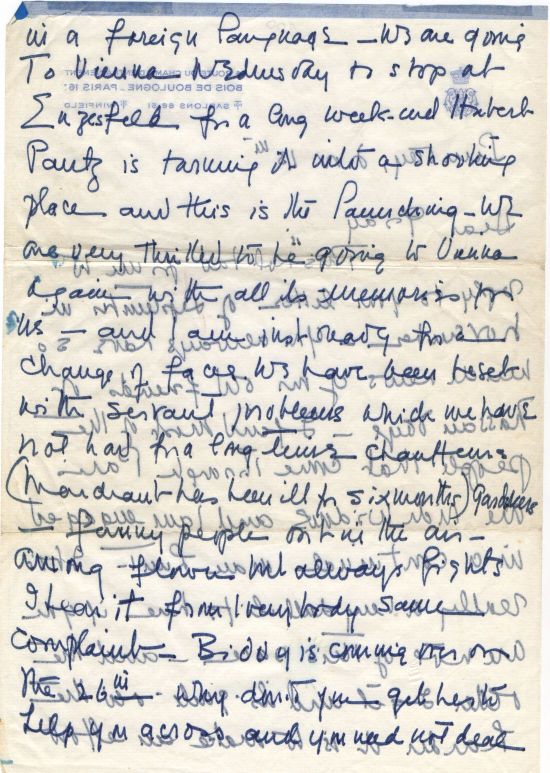 in a foreign language – We are going
To Vienna Wednesday to stop at
Enzesfeld for a long week-end Hubert
Pantz is turning it into a shooting
place and this is the launching – We
are very thrilled to be going to Vienna
again with all its memories for
us – and I am just ready for a
change of face We have been beset
with servant problems which we have
not had for a long time – chauffeurs
(Mordiant has been ill for six months) Gardeners
– funny people out in the air –
among flowers but always fights
I hear it from everybody same
complaint – Biddy is coming over on
the 26th – why don't you get her to
help you across and you need not deal